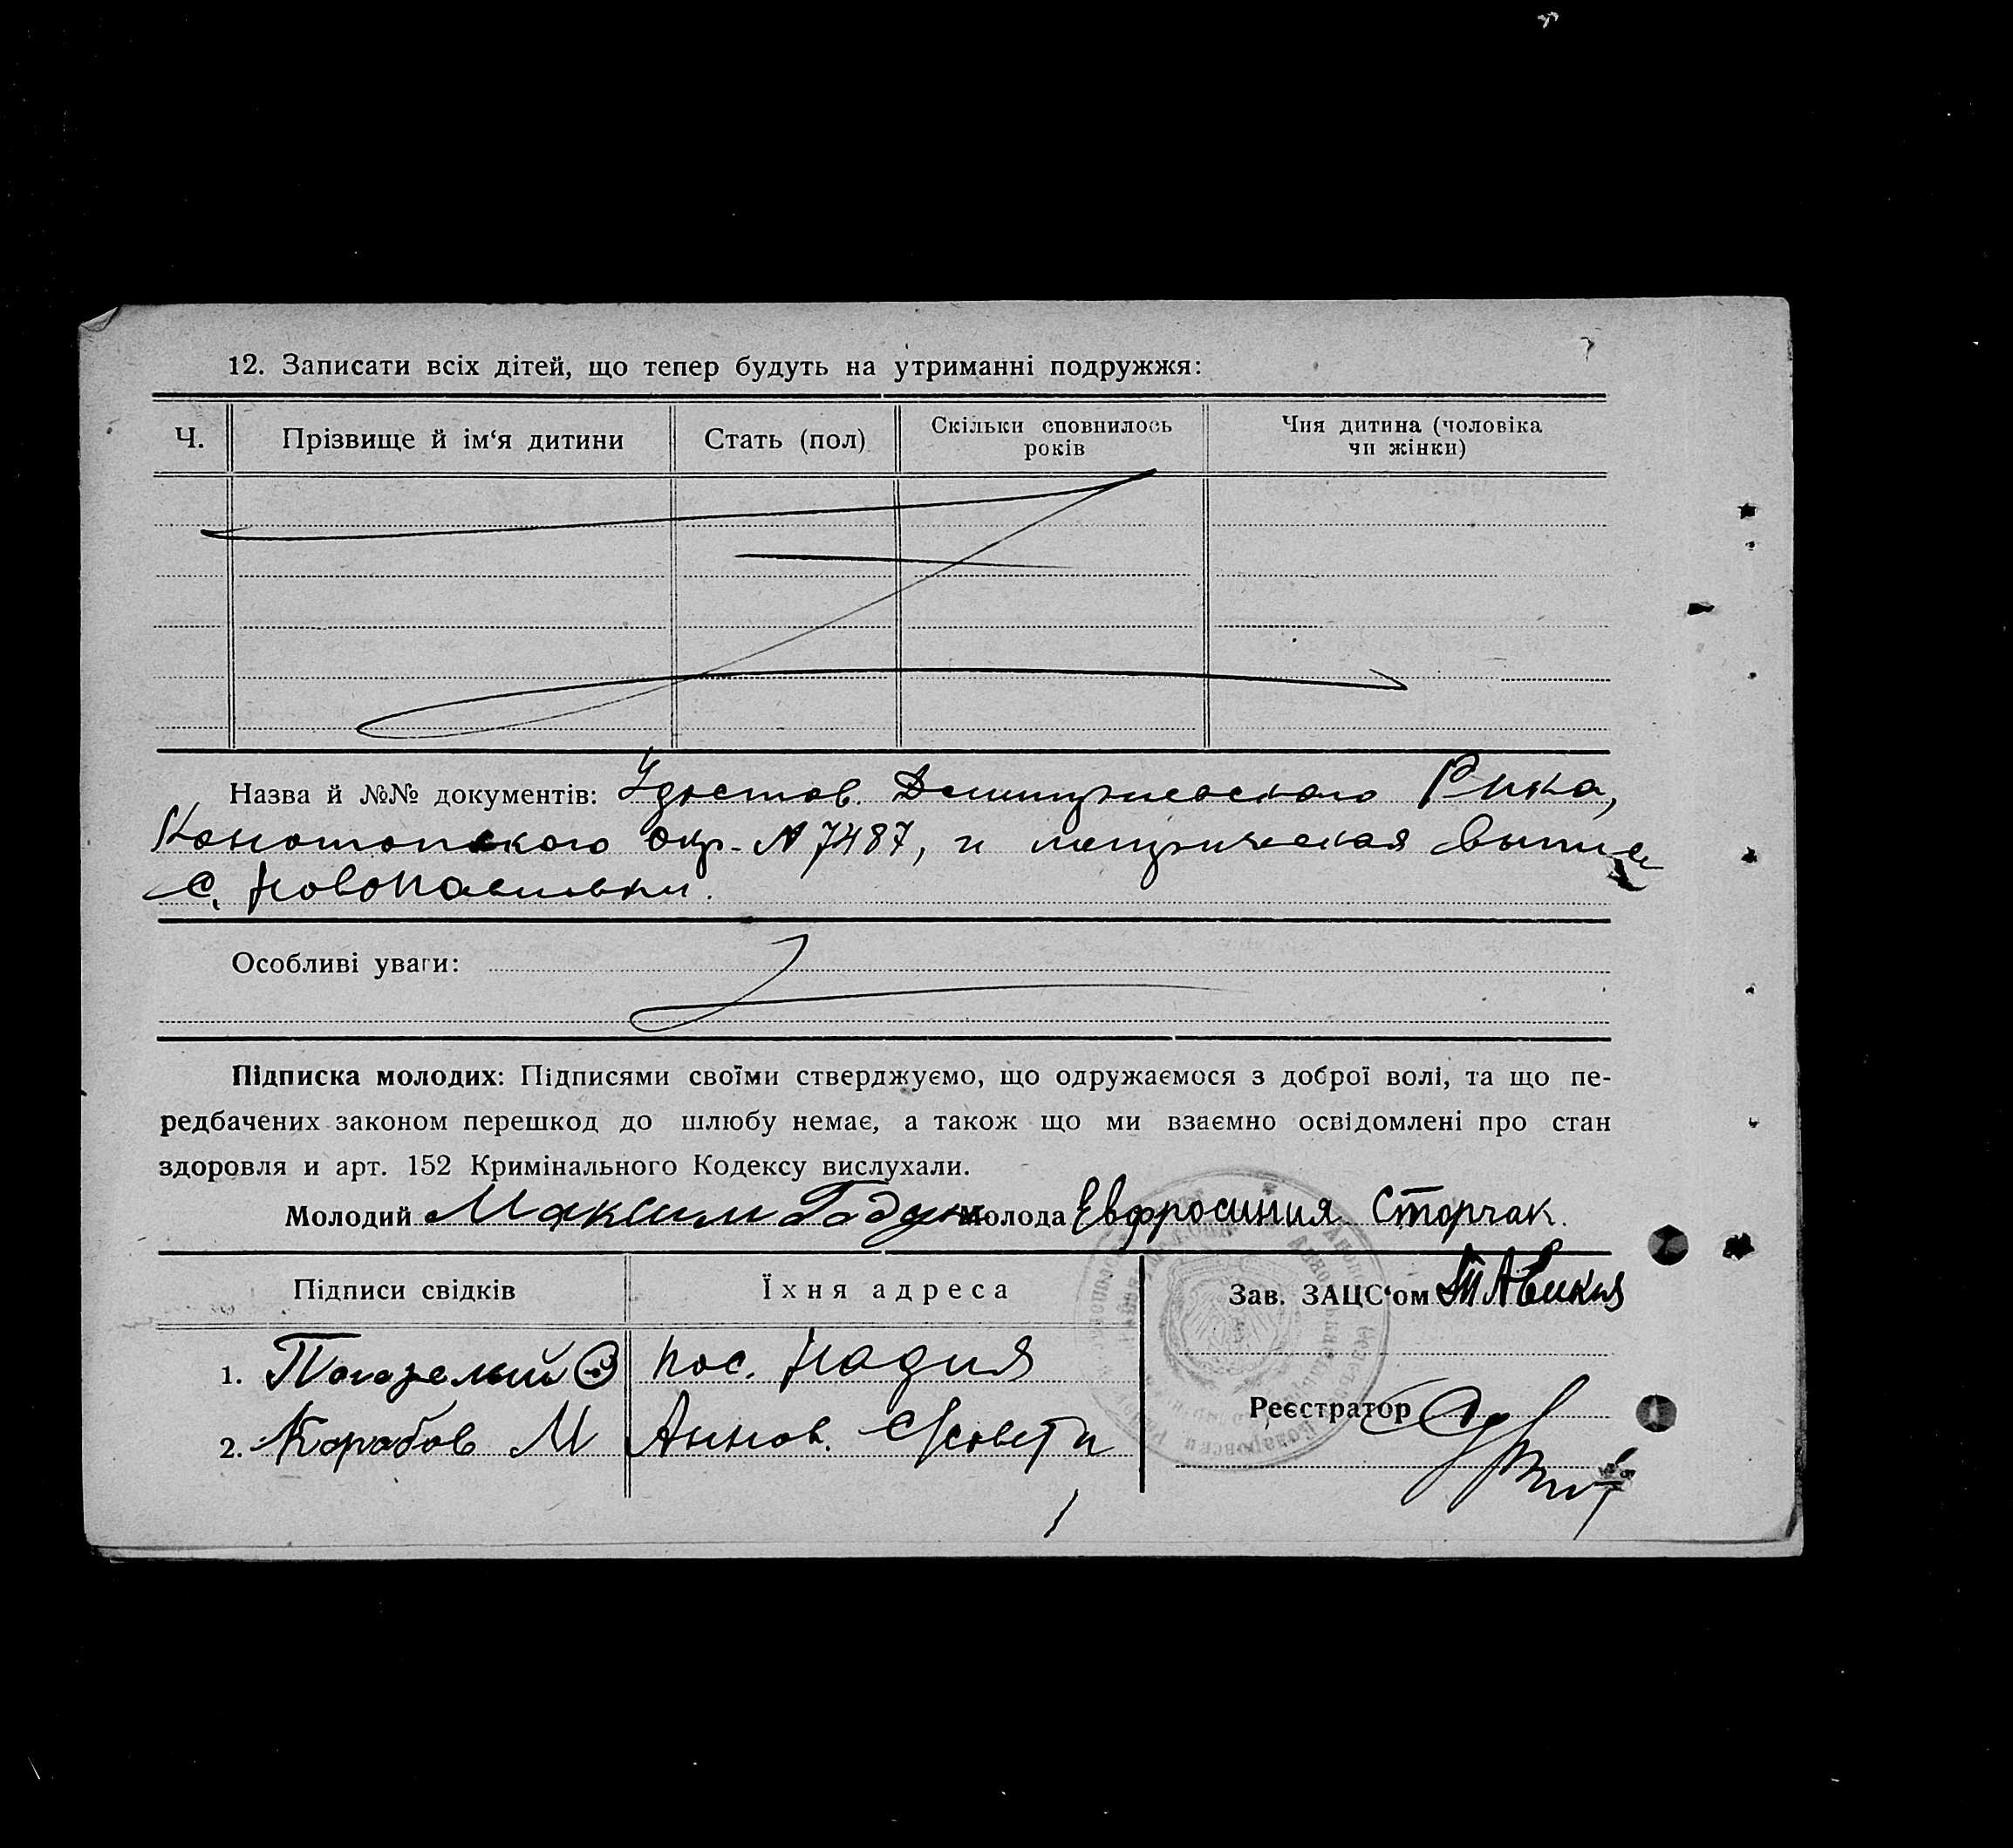 12. Записати всіх дітей, що тепер будуть на утриманні подружжя:
Ч.
Прізвище й ім‘я дитини
Стать (пол)
Скільки сповнилось
років
Чия дитина (чоловіка
чи жінки)
Назва й №№ документів: Удостов. Дмитриевского Рика,
Конотопского окр. № 7487, и метрическая выпис
с. Новопавловки.
Особливі уваги:
Підписка молодих: Підписями своїми стверджуємо, що одружаємося з доброї волі, та що пе-
редбачених законом перешкод до шлюбу немає, а також що ми взаємно освідомлені про стан
здоровля и арт. 152 Кримінального Кодексу вислухали.
Молодий Максим Годун Молода Евфросиния Сторчак.
Підписи свідків
Їхня адреса
Зав. ЗАЦС‘ом
1. Погорелый пос. Надия
2. Корабов М Аннов. с/совета
Реєстратор